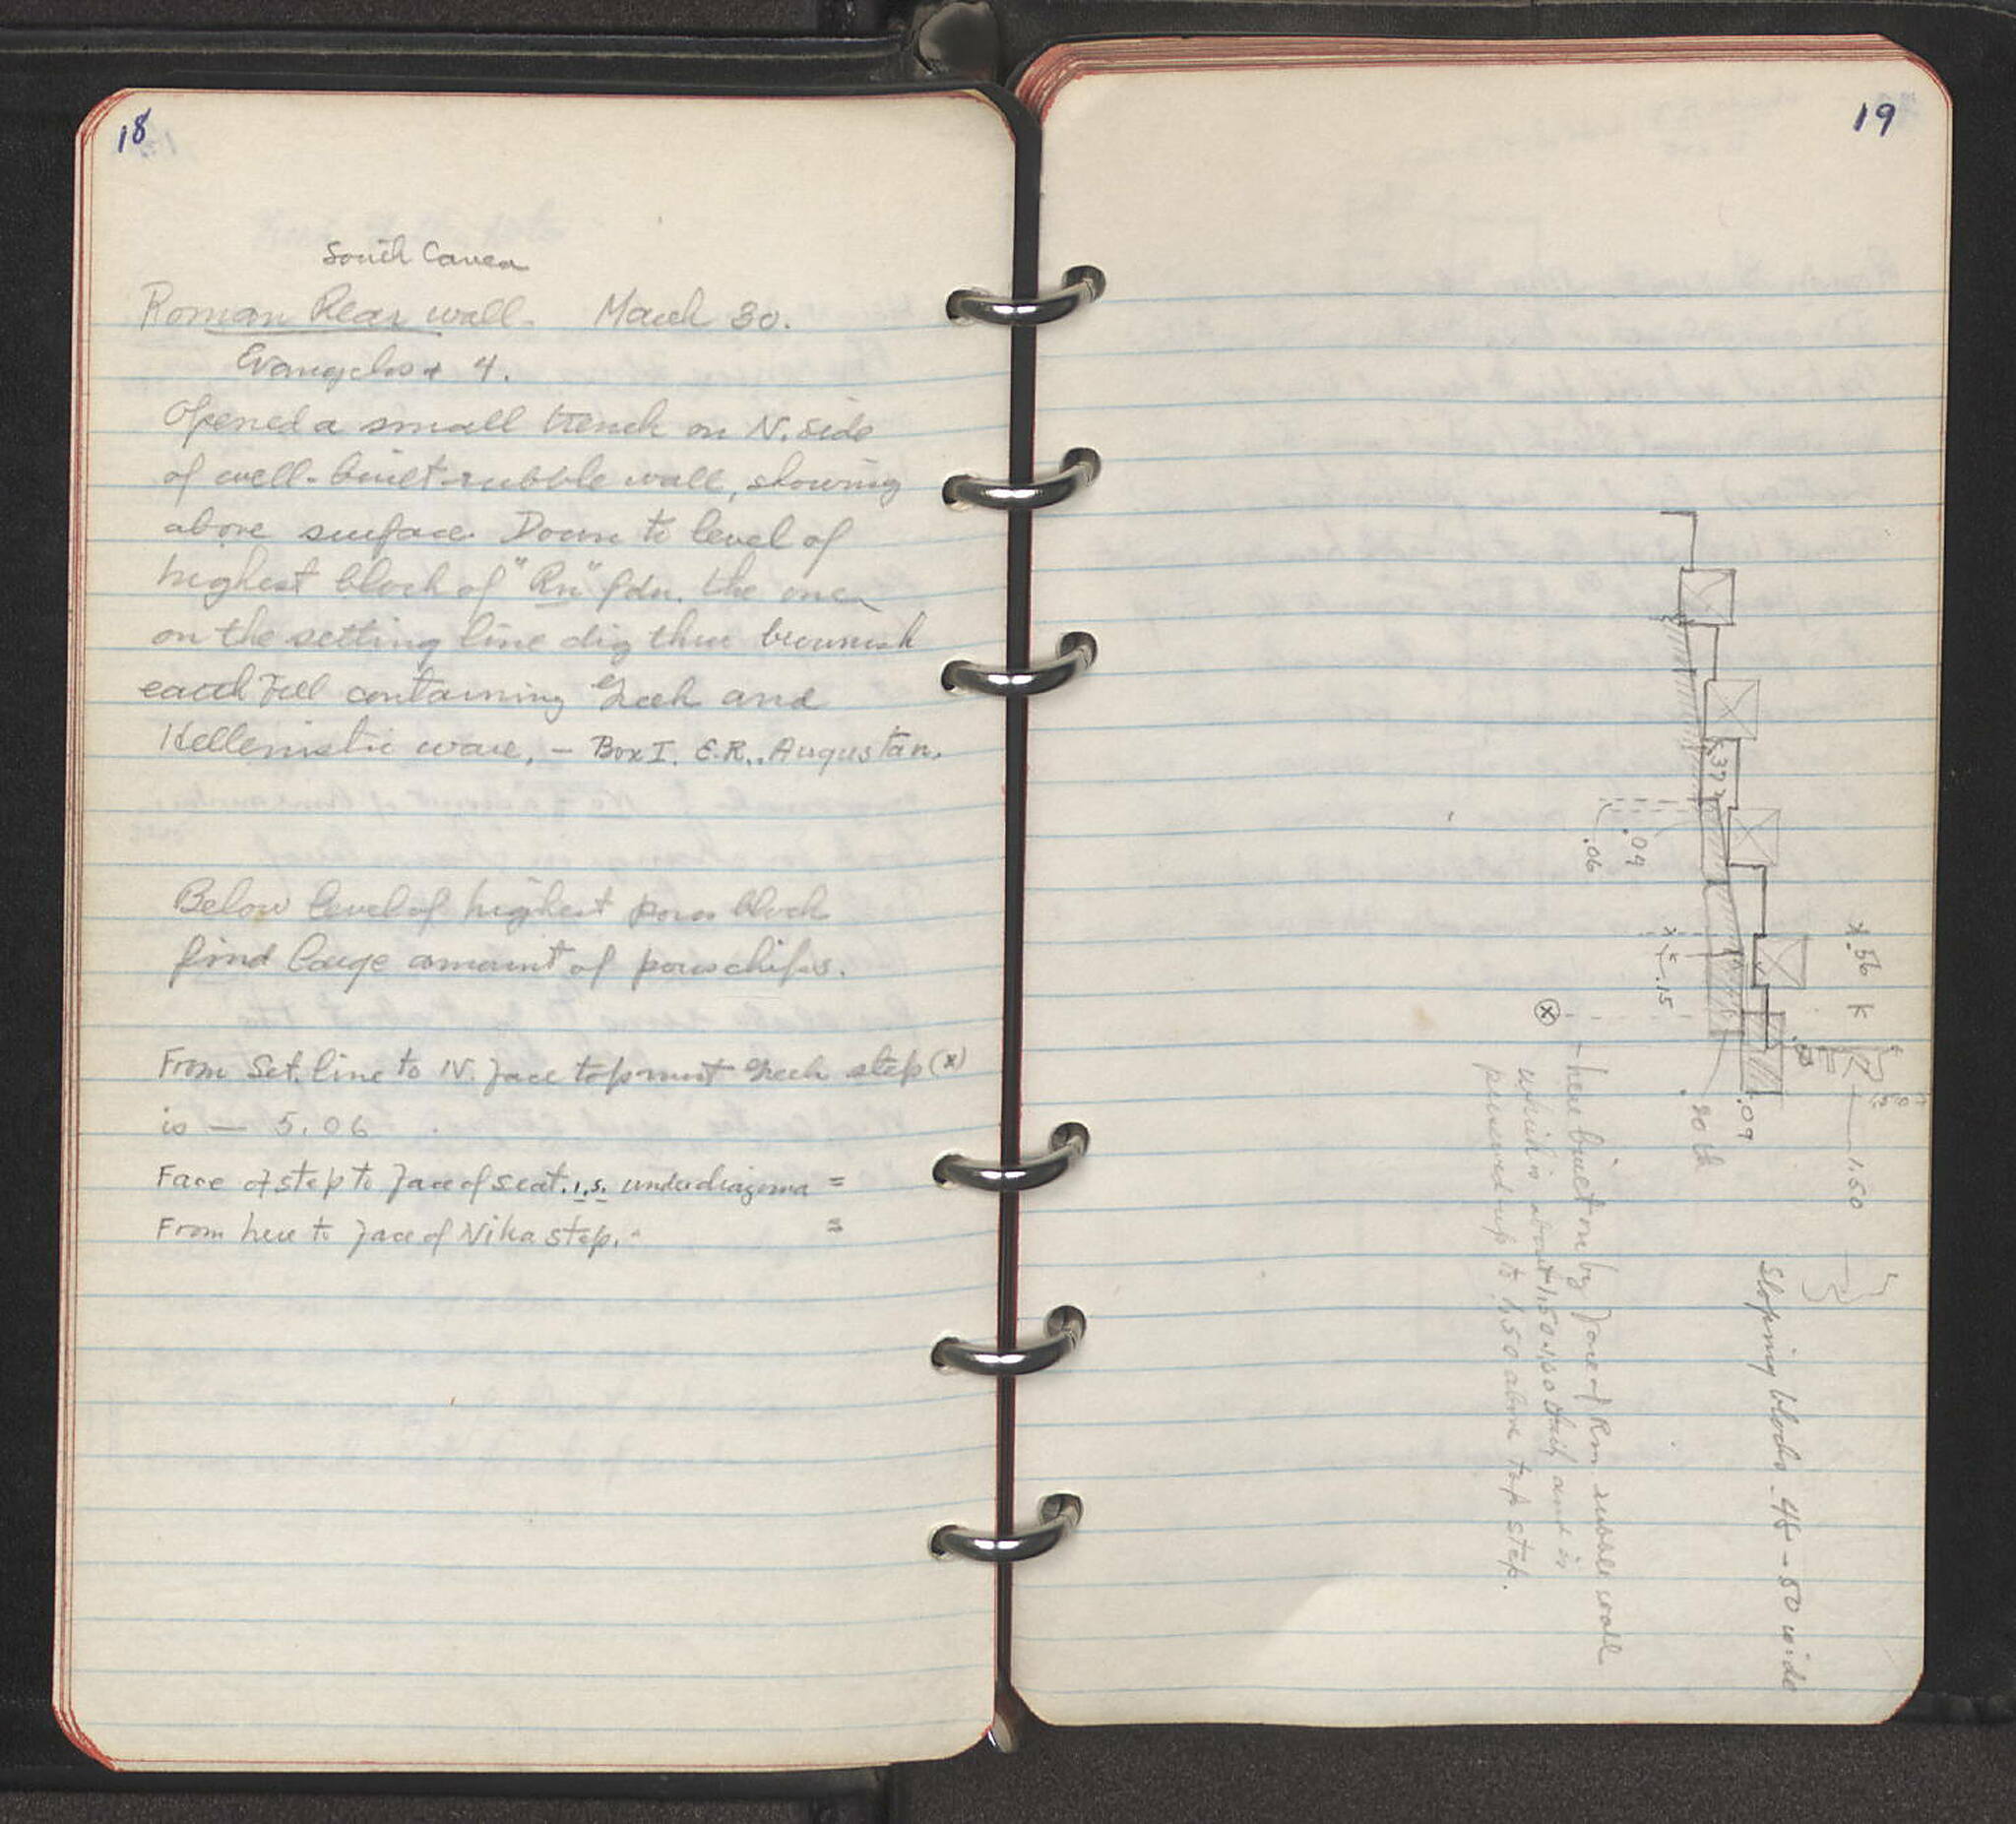 18
South Cavea
Roman Rear wall. March 30.
Evangelos + 4.
Opened a small trench on N. side
of well-built rubble wall, showing
above surface. Down to level of
highest block of "Rn" fdn. the one
on the setting line dig thru brownish
earth fill containing Greek and
Hellenistic ware, – Box I. E.R., Augustan.
Below level of highest poros block
find large amount of poros chips.
From Set. line to N. face topmost Greek step (x)
is — 5.06
Face of step to face of seat. 1,5. under diazoma =
From here to face of Nika step. =
19
.37
.09
.06
.15
.56
.09
1.50
Sloping blocks .48 – .50 wide
– here built on by face of Rm rubble wall
which is about 1.50 thick and is
preserved up to 1.50 above top step.